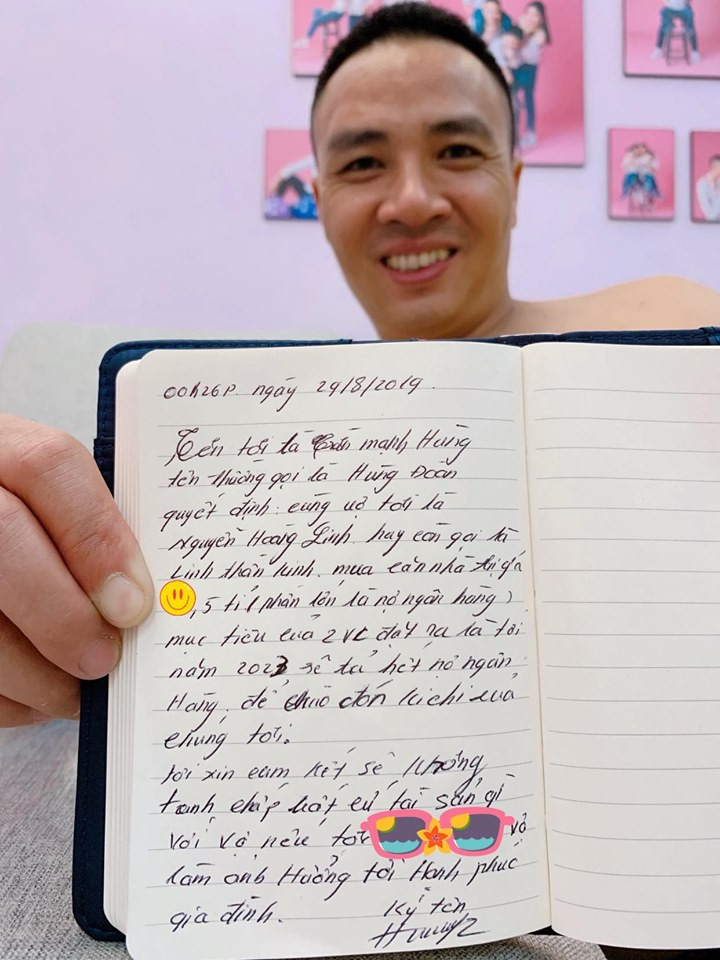 00h26p ngày 29/8/2019.
Tên tôi là Trần mạnh Hùng
tên thường gọi là Hùng Đoàn
quyết định cùng vợ tôi là
Nguyễn Hoàng Linh hay còn gọi là
Linh thần kinh. mua căn nhà trị giá
,5 tỉ (phần lớn là nợ ngân hàng)
mục tiêu của 2 VC đặt ra là tới
năm 2023 sẽ trả hết nợ ngân
Hàng. để chào đón kichi của
chúng tôi.
tôi xin cam kết sẽ không
tranh chấp bất cứ tài sản gì
với vợ nếu tôi vỡ
làm ảnh Hưởng tới Hạnh phúc
gia đình. Ký tên